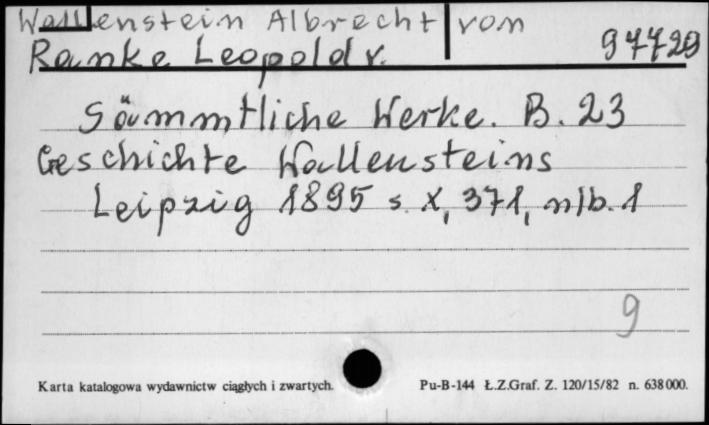 Wallenstein Albrecht von
Ranke Leopold v. 97729
Sämmtliche Werke. B. 23
Geschichte Wallensteins
Leipzig 1895 s. X, 371, nlb. 1
9
Karta katalogowa wydawnictw ciągłych i zwartych. Pu-B-144 Ł.Z.Graf. Z. 120/15/82 n. 638000.